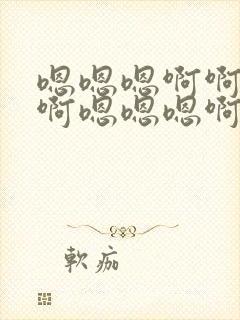 嗯嗯嗯啊啊
啊嗯嗯嗯啊
軟痂